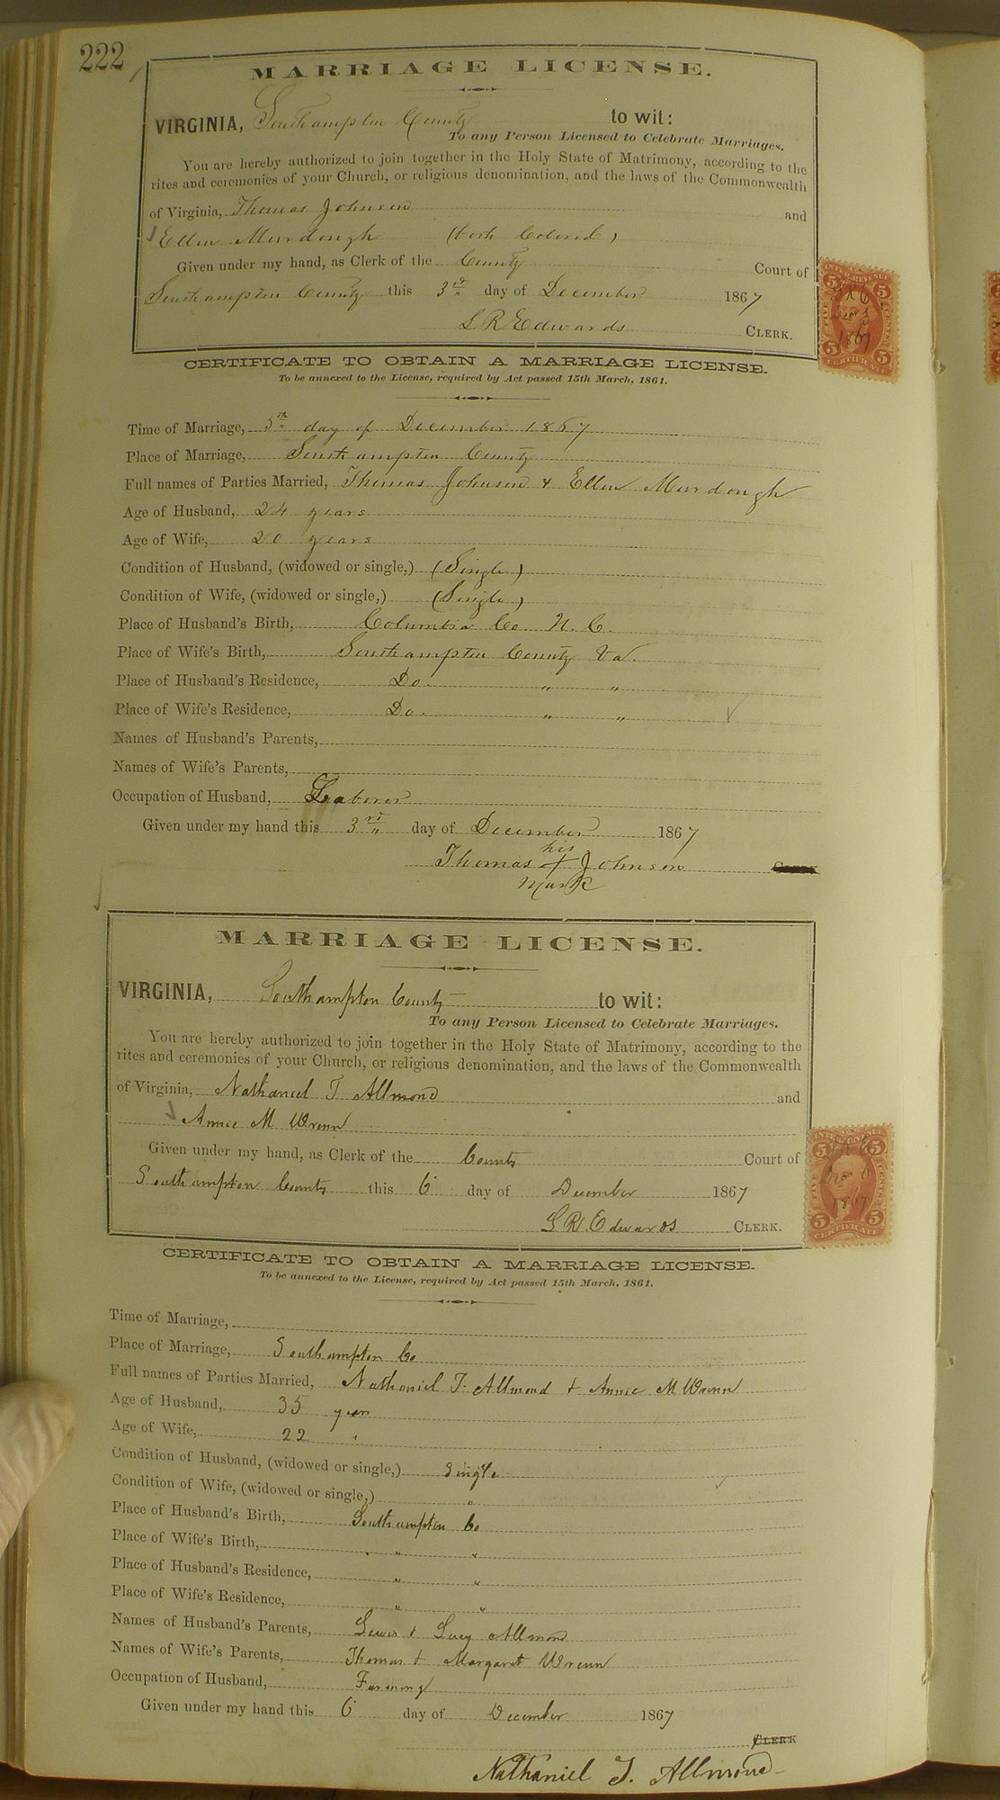 222
MARRIAGE LICENSE.
VIRGINIA, Southampton County to wit:
To any Person Licensed to Celebrate Marriages.
You are hereby authorized to join together in the Holy State of Matrimony, according to the
rites and ceremonies of your Church, or religious denomination, and the laws of the Commonwealth
of Virginia, Thomas Johnson and
Ellen Murdough (both Colored)
Given under my hand, as Clerk of the County Court of
Southampton County this 3rd day of December 1867
L R Edwards CLERK.
CERTIFICATE TO OBTAIN A MARRIAGE LICENSE.
To be annexed to the License, required by Act passed 15th March, 1861.
Time of Marriage, 5th day of December 1867
Place of Marriage, Southampton County
Full names of Parties Married, Thomas Johnson & Ellen Murdough
Age of Husband, 24 years
Age of Wife, 20 years
Condition of Husband, (widowed or single,) (Single)
Condition of Wife, (widowed or single,) (Single)
Place of Husband's Birth, Columbia Co N. C.
Place of Wife's Birth, Southampton County Va.
Place of Husband's Residence, Do. " "
Place of Wife's Residence, Do. " "
Names of Husband's Parents,
Names of Wife's Parents,
Occupation of Husband, Laborer
Given under my hand this 3rd day of December 1867
his
Thomas X Johnson CLERK
mark
MARRIAGE LICENSE.
VIRGINIA, Southampton County to wit:
To any Person Licensed to Celebrate Marriages.
You are hereby authorized to join together in the Holy State of Matrimony, according to the
rites and ceremonies of your Church, or religious denomination, and the laws of the Commonwealth
of Virginia, Nathaniel T Allmond and
Annie M Wrenn
Given under my hand, as Clerk of the County Court of
Southampton County this 6 day of December 1867
L R Edwards CLERK.
CERTIFICATE TO OBTAIN A MARRIAGE LICENSE.
To be annexed to the License, required by Act passed 15th March, 1861.
Time of Marriage,
Place of Marriage, Southampton Co
Full names of Parties Married, Nathaniel T. Allmond & Annie M Wrenn
Age of Husband, 35 years
Age of Wife, 22 "
Condition of Husband, (widowed or single,) Single
Condition of Wife, (widowed or single,) "
Place of Husband's Birth, Southampton Co
Place of Wife's Birth, " "
Place of Husband's Residence, " "
Place of Wife's Residence, " "
Names of Husband's Parents, Lewis & Lucy Allmond
Names of Wife's Parents, Thomas & Margaret Wrenn
Occupation of Husband, Farming
Given under my hand this 6 day of December 1867
CLERK
Nathaniel T. Allmond